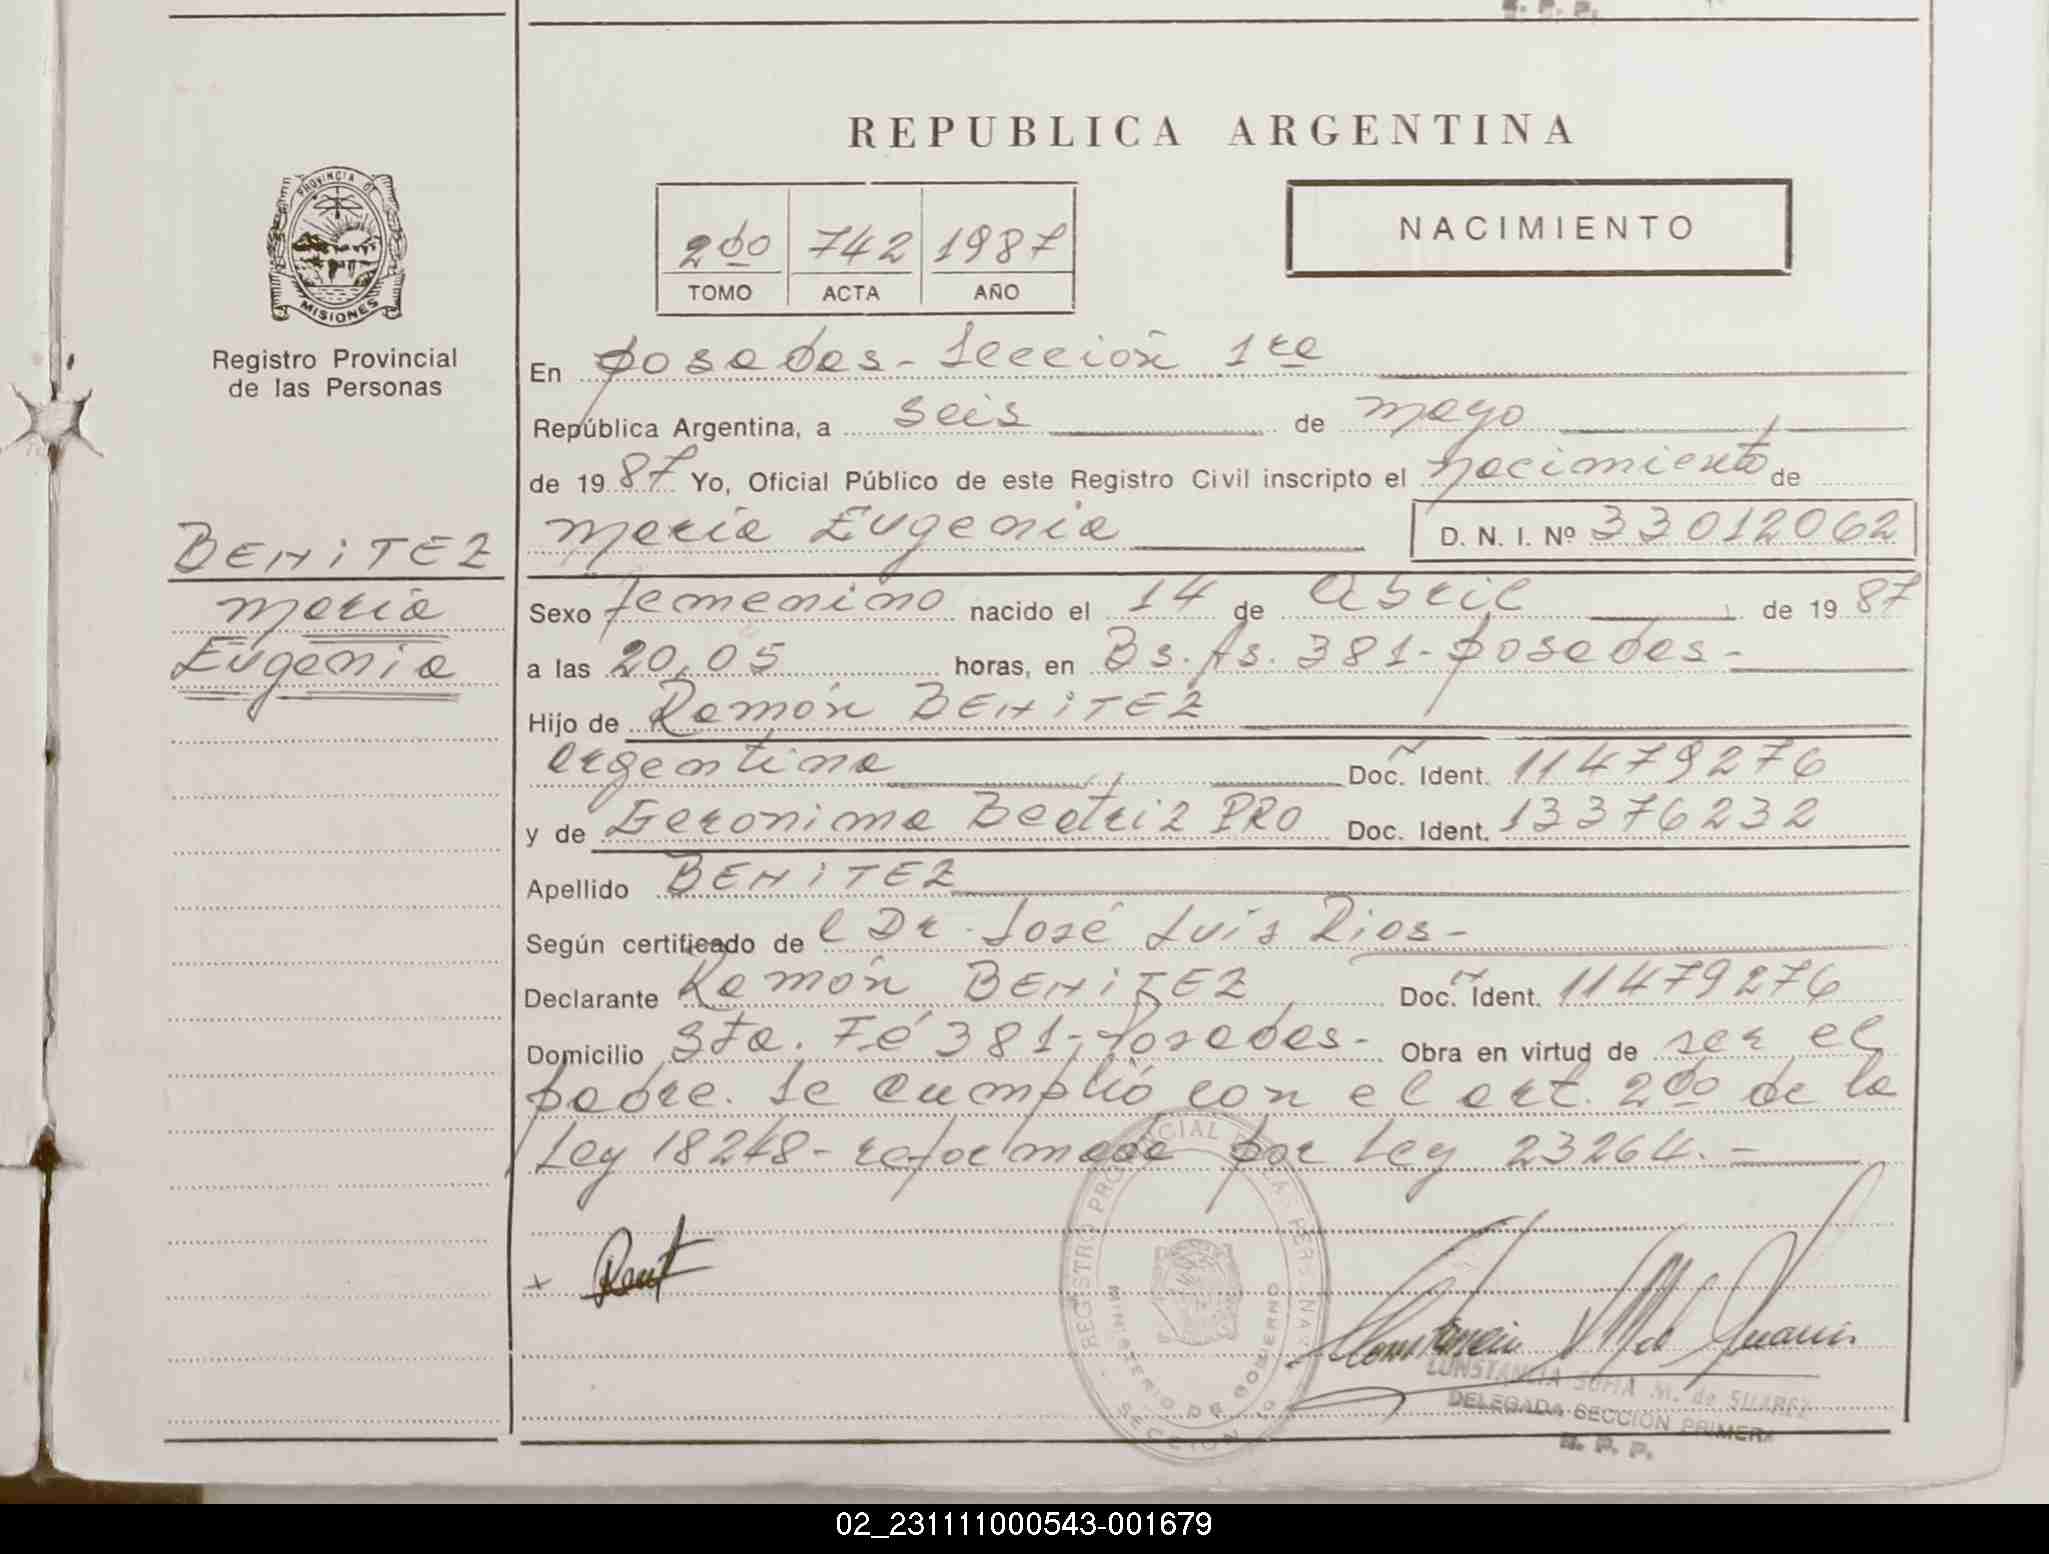 REPUBLICA ARGENTINA
PROVINCIA DE
MISIONES
Registro Provincial
de las Personas
2do 742 1987
TOMO ACTA AÑO
NACIMIENTO
En posadas - Sección 1ra
República Argentina, a seis de mayo
de 19 87 Yo, Oficial Público de este Registro Civil inscripto el nacimiento de
María Eugenia D. N. I. Nº 33012062
BENITEZ
María
Eugenia
Sexo femenino nacido el 14 de Abril de 19 87
a las 20,05 horas, en Bs. As. 381 - posadas -
Hijo de Ramón BENITEZ
argentina Doc. Ident. 11479276
y de Geronima Beatriz PRO Doc. Ident. 13376232
Apellido BENITEZ
Según certificado de l Dr. José Luis Rios -
Declarante Ramón BENITEZ Doc. Ident. 11479276
Domicilio Sta. Fé 381 - Posadas - Obra en virtud de ser el
padre. Se cumplió con el art. 2do de la
Ley 18248 - reformada por Ley 23264. -
REGISTRO PROVINCIAL
MINISTERIO DE GOBIERNO
SECCION
CONSTANCIA SOFIA M. de SUAREZ
DELEGADA SECCION PRIMERA
R. P. P.
02_231111000543-001679